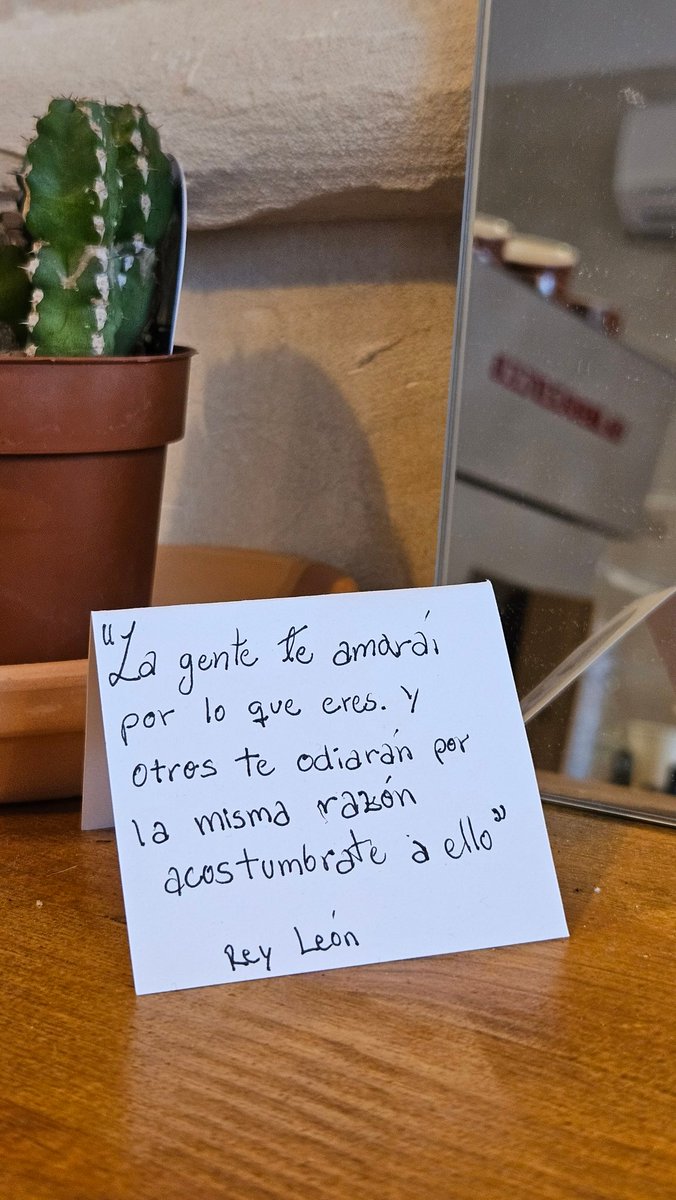 "La gente te amarái
por lo que eres. y
otros te odiarán por
la misma razón
acostumbrate a ello"
Rey León